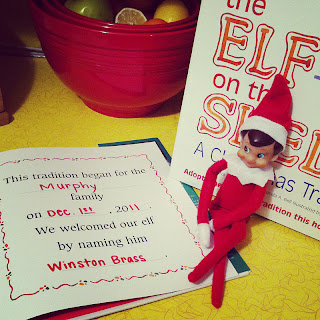 the
ELF
on the
SHELF
A Christmas Tra
Adopt
tradition this ho
This tradition began for the
Murphy
family
on Dec. 1st, 2011.
We welcomed our elf
by naming him
Winston Brass.